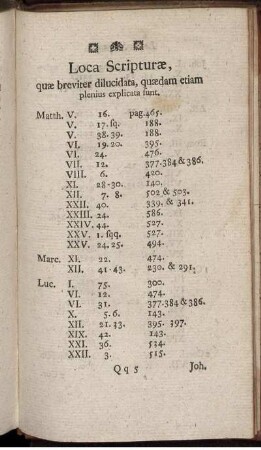 Loca Scripturæ,
quæ breviter dilucidata, quædam etiam
plenius explicata sunt.
Matth. V. 16. pag. 465.
V. 17. sq. 188.
V. 38. 39. 188.
VI. 19. 20. 395.
VI. 24. 476.
VII. 12. 377-384 & 386.
VIII. 6. 420.
XI. 28-30. 140.
XII. 7. 8. 502 & 503.
XXII. 40. 339. & 341.
XXIII. 24. 586.
XXIV. 44. 527.
XXV. 1. sqq. 527.
XXV. 24. 25. 494.
Marc. XI. 22. 474.
XII. 41-43. 230. & 291.
Luc. I. 75. 300.
VI. 12. 474.
VI. 31. 377-384 & 386.
X. 5. 6. 143.
XII. 21. 33. 395. 397.
XIX. 42. 143.
XXI. 36. 534.
XXII. 3. 515.
Q q 5 Joh.